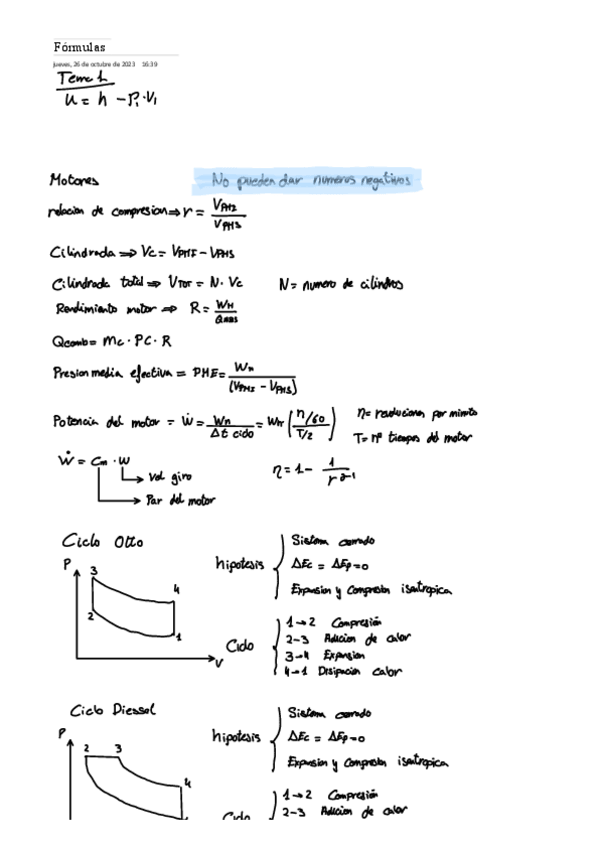 Fórmulas
jueves, 26 de octubre de 2023 16:39
Tema 1
u = h - P₁·V₁
Motores No pueden dar numeros negativos
relacion de compresion ⇒ r = VPMI / VPMS
Cilindrada ⇒ Vc = VPMI - VPMS
Cilindrada total ⇒ VTOT = N · Vc N = numero de cilindros
Rendimiento motor ⇒ R = WN / Qabs
Qcomb = mc · PC · R
Presion media efectiva = PME = Wn / (VPMI - VPMS)
Potencia del motor = Ẇ = Wn / Δt ciclo = Wn (n/60 / T/2) n = revoluciones por minuto
T = nº tiempos del motor
Ẇ = Cm · W η = 1 - 1 / r^γ-1
Vel giro
Par del motor
Ciclo Otto
P 3 4 2 1 V
hipotesis
Sistema cerrado
ΔEc = ΔEp = 0
Expansion y Compresion isentropica
Ciclo
1→2 Compresión
2-3 Adicion de calor
3-4 Expansion
4-1 Disipacion calor
Ciclo Diessel
P 2 3 4
hipotesis
Sistema cerrado
ΔEc = ΔEp = 0
Expansion y Compresion isentropica
Ciclo
1→2 Compresión
2-3 Adicion de calor